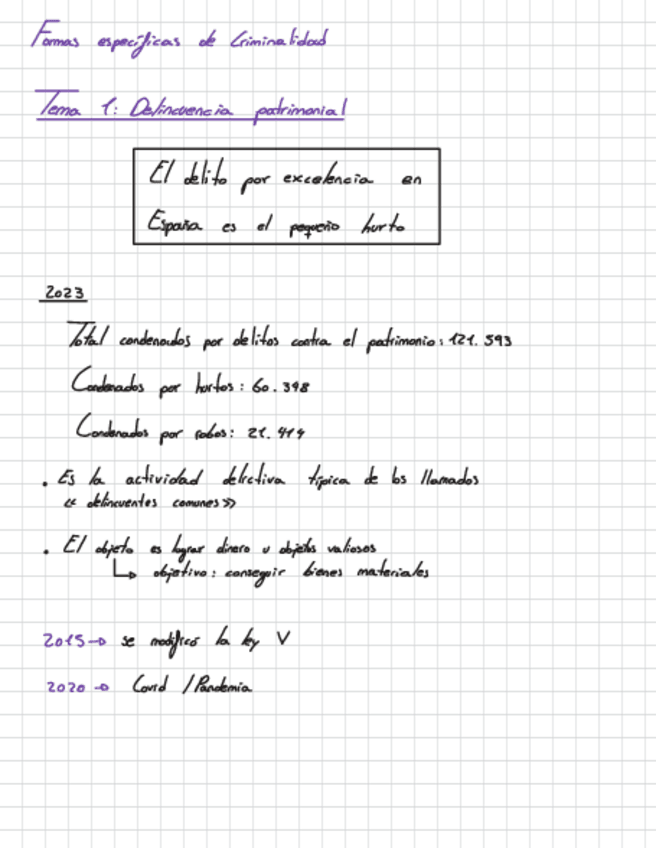 Formas específicas de Criminalidad
Tema 1: Delincuencia patrimonial
El delito por excelencia en
España es el pequeño hurto
2023
Total condenados por delitos contra el patrimonio: 121.593
Condenados por hurtos: 60.398
Condenados por robos: 21.414
• Es la actividad delictiva típica de los llamados
« delincuentes comunes »
• El objeto es lograr dinero u objetos valiosos
↳ objetivo: conseguir bienes materiales
2015 → se modificó la ley V
2020 → Covid / Pandemia